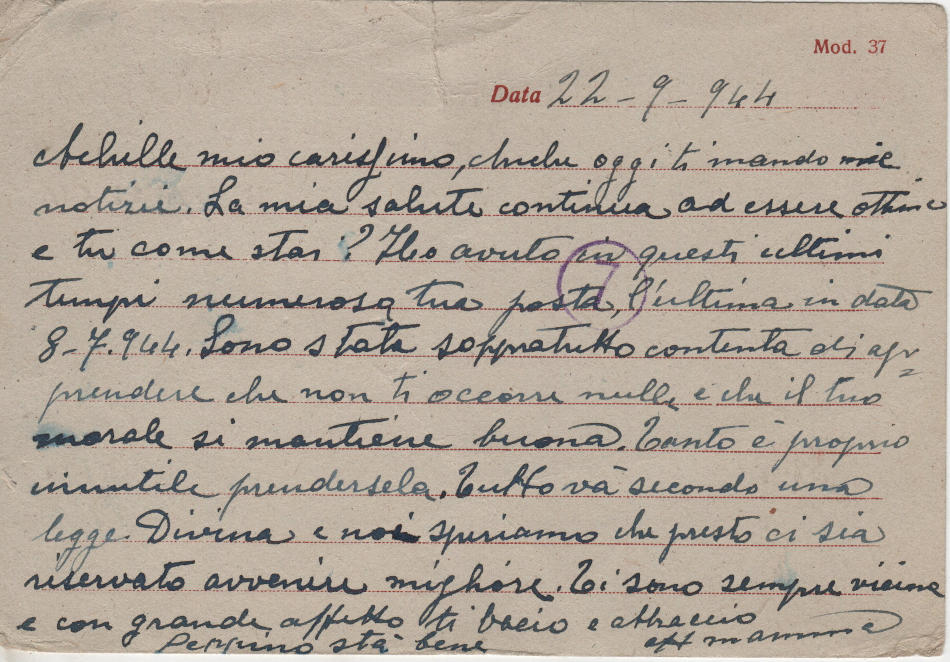 Mod. 37
Data 22-9-944
Achille mio carissimo, Anche oggi ti mando mie
notizie. La mia salute continua ad essere ottima
e tu come stai? Ho avuto in questi ultimi
7
tempi numerosa tua posta, l'ultima in data
8-7.944. Sono stata soppratutto contenta di ap=
prendere che non ti occorre nulla e che il tuo
morale si mantiene buona. Tanto è proprio
innutile prendersela. Tutto và secondo una
legge Divina e noi speriamo che presto ci sia
riservato avvenire migliore. Ti sono sempre vicina
e con grande affetto ti bacio e abbraccio
aff mamma
Peppino stà bene